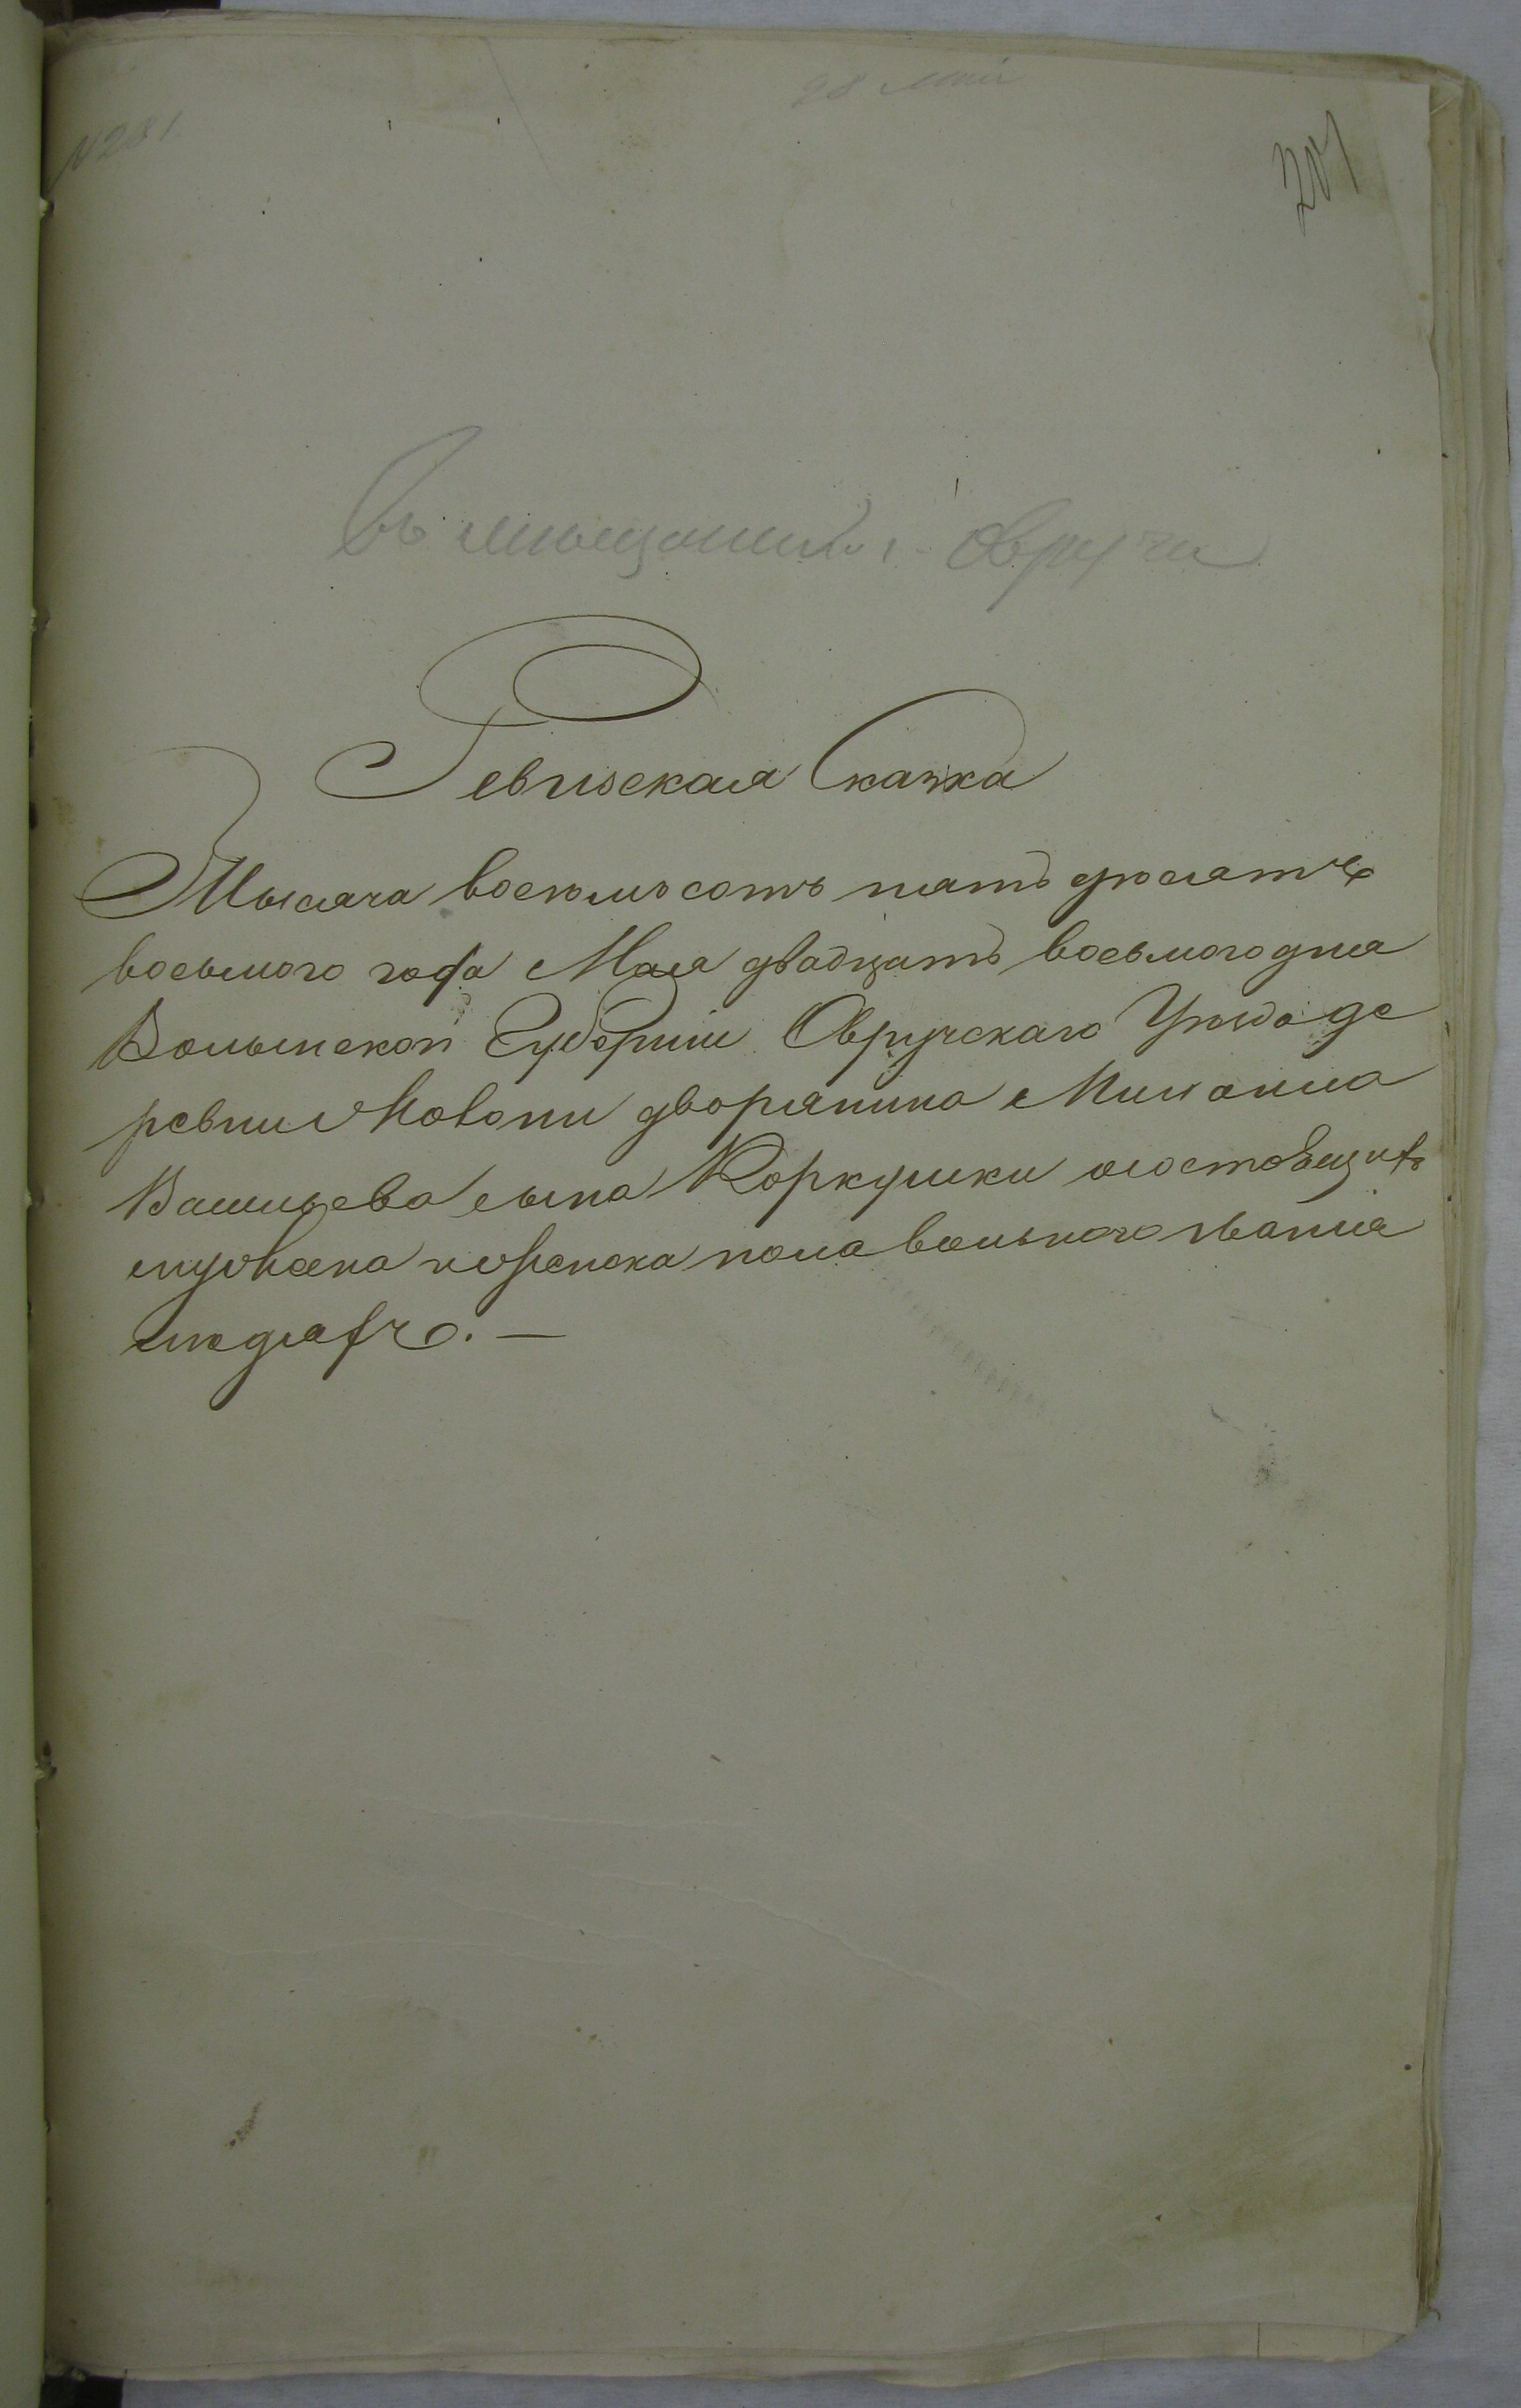 28 мая
№281
201
Въ мещани г. Овруча
Ревизская Сказка
Тысяча восемьсотъ пятьдесятъ
восьмого года Мая двадцать восьмого дня
Волынской Губерніи Овручскаго Уѣзда де
ревни дворянина Михаила
Васильева сына о состоящихъ
мужеска и женска пола вольного званія
людяхъ. —